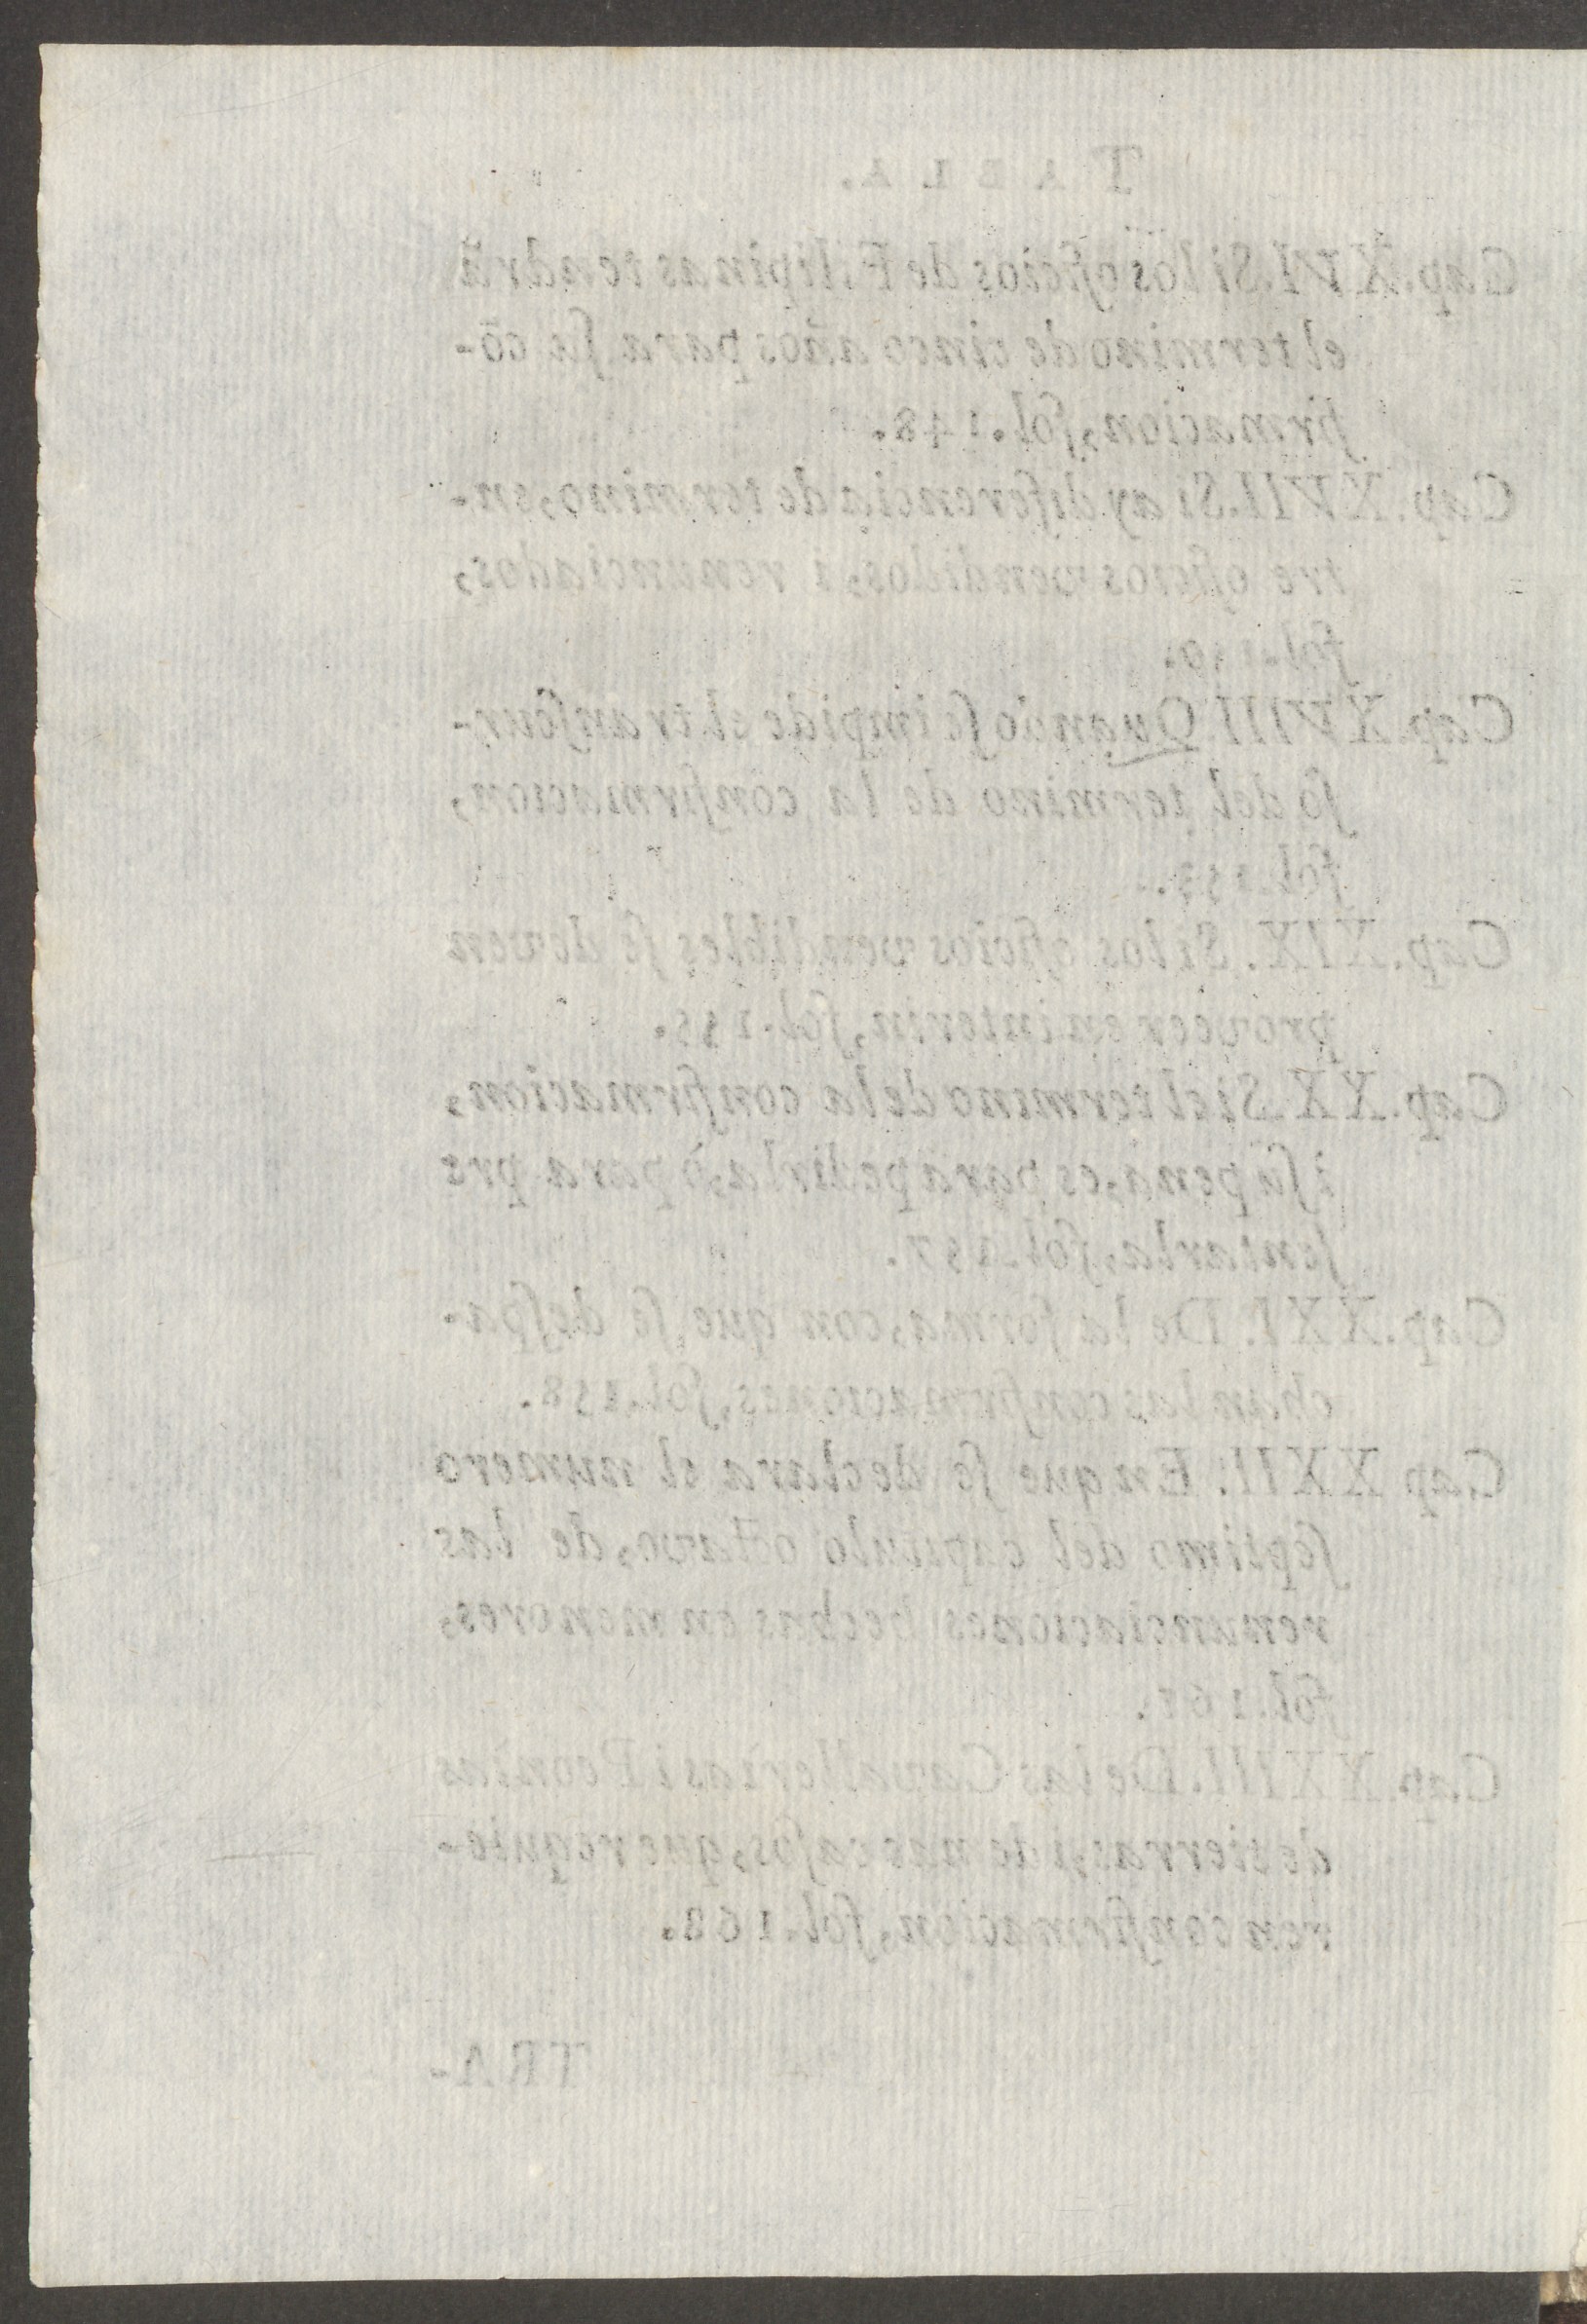 TABLA.
Cap. XVI. Si los oficios de Filipinas tendrã
el termino de cinco años para ſu cõ-
firmacion, fol. 148.
Cap. XVII. Si ay diferencia de termino, en-
tre oficios vendidos, i renunciados,
fol. 150.
Cap. XVIII. Quando ſe impide el tranſcur-
ſo del termino de la confirmacion,
fol.
Cap. XIX. Si los oficios vendibles ſe deven
proveer en interin, fol. 155.
Cap. XX. Si el termino de la confirmacion,
i ſu pena, es para pedirla, ò para pre
ſentarla, fol. 157.
Cap. XXI. De la forma, con que ſe deſpa-
chan las confirmaciones, fol. 158.
Cap XXII. En que ſe declara el numero
ſeptimo del capitulo octavo, de las
renunciaciones hechas en menores,
fol. 161.
Cap. XXIII. De las Cavallerias i Peonias
de tierras, i de mas caſos, que requie-
ren confirmacion, fol. 168.
TRA-